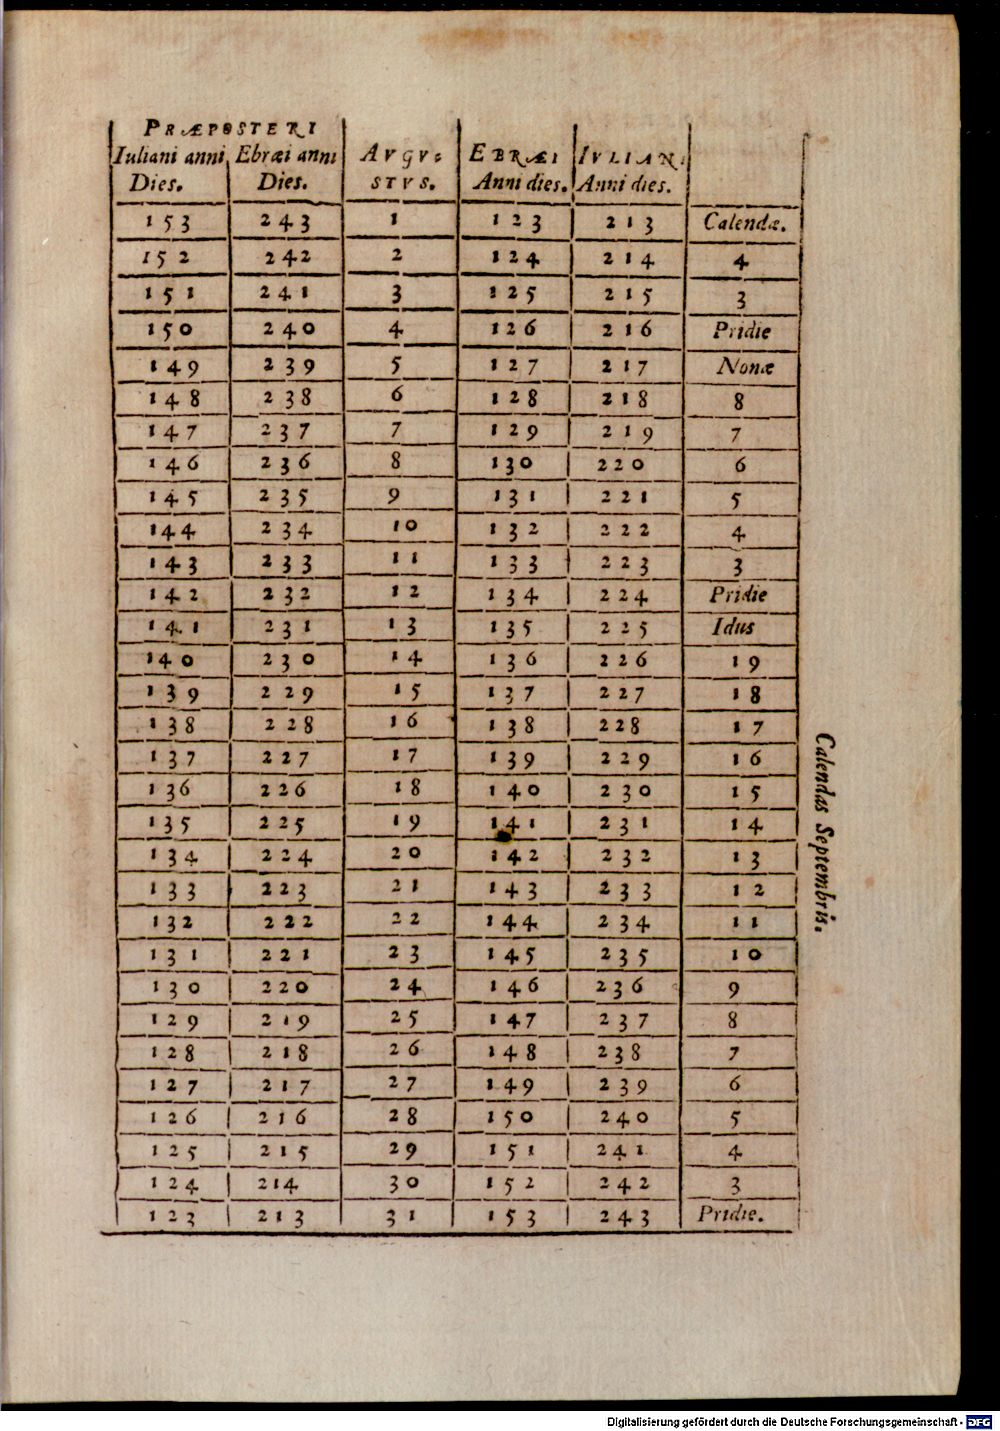 PRÆPOSTERI
Iuliani anni Dies. | Ebræi anni Dies. | AVGVSTVS. | EBRÆI Anni dies. | IVLIANI Anni dies.
153 243 1 123 213 Calendæ.
152 242 2 124 214 4
151 241 3 125 215 3
150 240 4 126 216 Pridie
149 239 5 127 217 Nonæ
148 238 6 128 218 8
147 237 7 129 219 7
146 236 8 130 220 6
145 235 9 131 221 5
144 234 10 132 222 4
143 233 11 133 223 3
142 232 12 134 224 Pridie
141 231 13 135 225 Idus
140 230 14 136 226 19
139 229 15 137 227 18
138 228 16 138 228 17
137 227 17 139 229 16
136 226 18 140 230 15
135 225 19 141 231 14
134 224 20 142 232 13
133 223 21 143 233 12
132 222 22 144 234 11
131 221 23 145 235 10
130 220 24 146 236 9
129 219 25 147 237 8
128 218 26 148 238 7
127 217 27 149 239 6
126 216 28 150 240 5
125 215 29 151 241 4
124 214 30 152 242 3
123 213 31 153 243 Pridie.
Calendas Septembris.
Digitalisierung gefördert durch die Deutsche Forschungsgemeinschaft - DFG